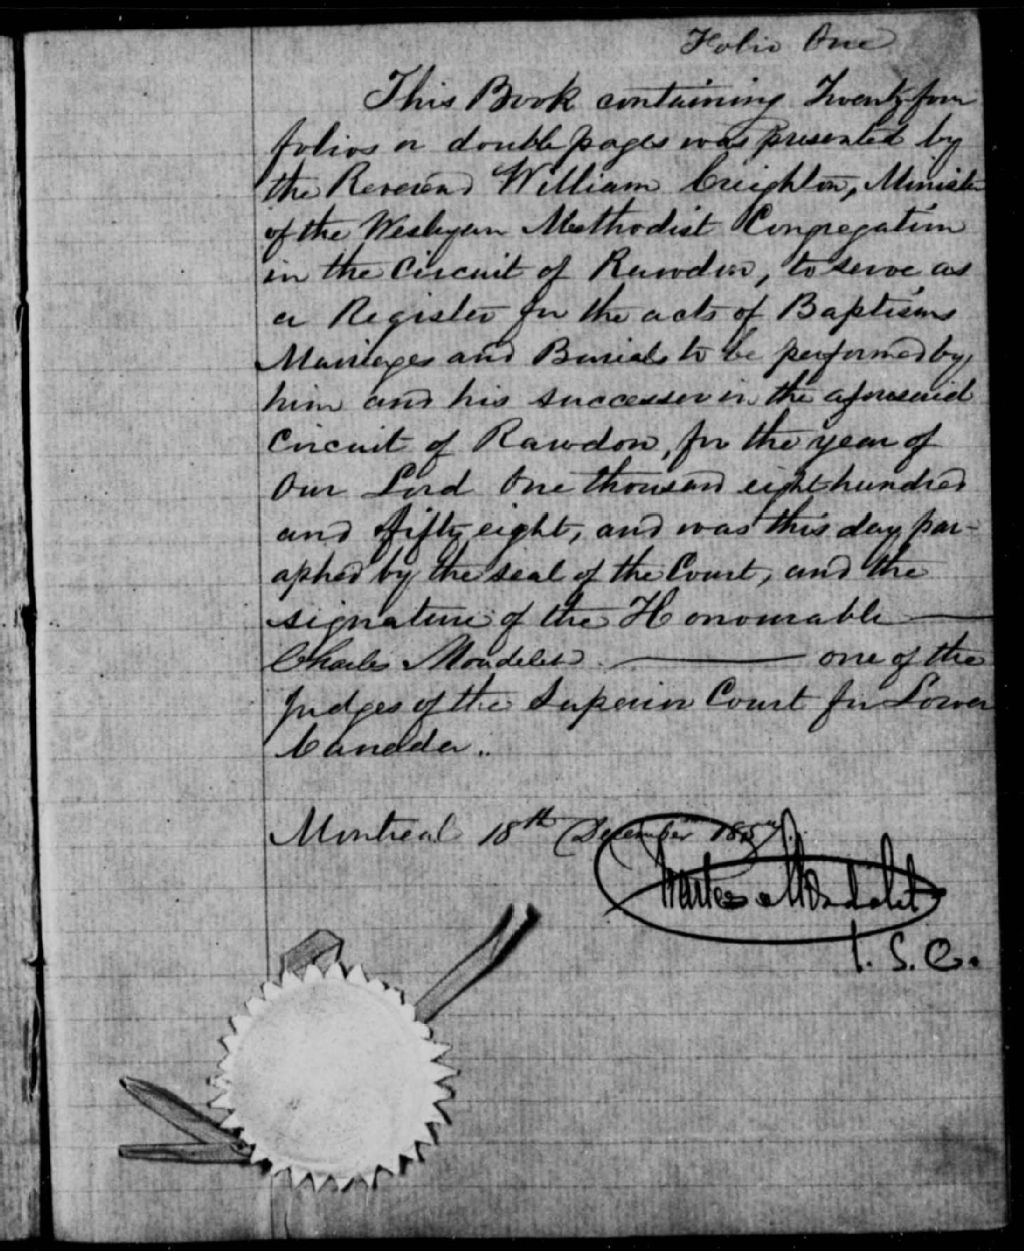 Folio One
This Book containing Twenty four
folios or double pages was presented by
the Reverend William Creighton, Minister
of the Wesleyan Methodist Congregation
in the Circuit of Rawdon, to serve as
a Register for the acts of Baptisms
Marriages and Burials to be performed by
him and his successor in the aforesaid
Circuit of Rawdon, for the year of
Our Lord One thousand eight hundred
and fifty eight, and was this day par-
aphed by the seal of the Court, and the
signature of the Honourable
Charles Mondelet one of the
Judges of the Superior Court for Lower
Canada..
Montreal 18th December 1857.
Charles Mondelet
J. S. C.